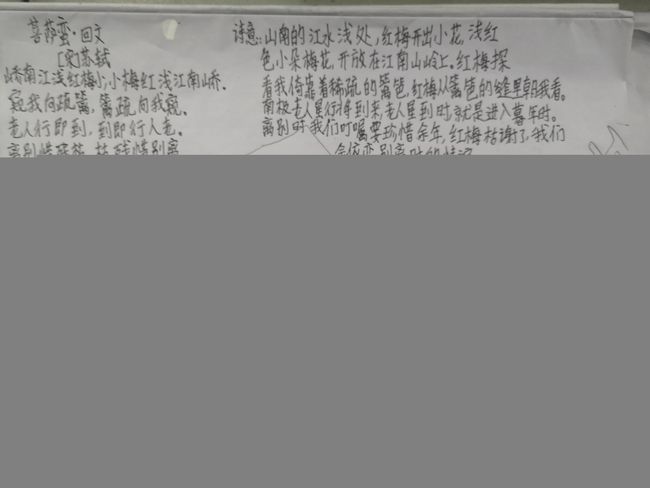 菩萨蛮·回文
[宋]苏轼
峤南江浅红梅小,小梅红浅江南峤.
窥我向疏篱,篱疏向我窥.
老人行即到,到即行人老.
离别惜残枝,枝残惜别离
诗意:山南的江水浅处,红梅开出小花,浅红
色小朵梅花,开放在江南山岭上.红梅探
看我倚靠着稀疏的篱笆,红梅从篱笆的缝里朝我看.
南极老人星行将到来,老人星到时,就是进入暮年时.
离别时我们叮嘱要珍惜余年,红梅枯谢了,我们
会依恋别离时的情